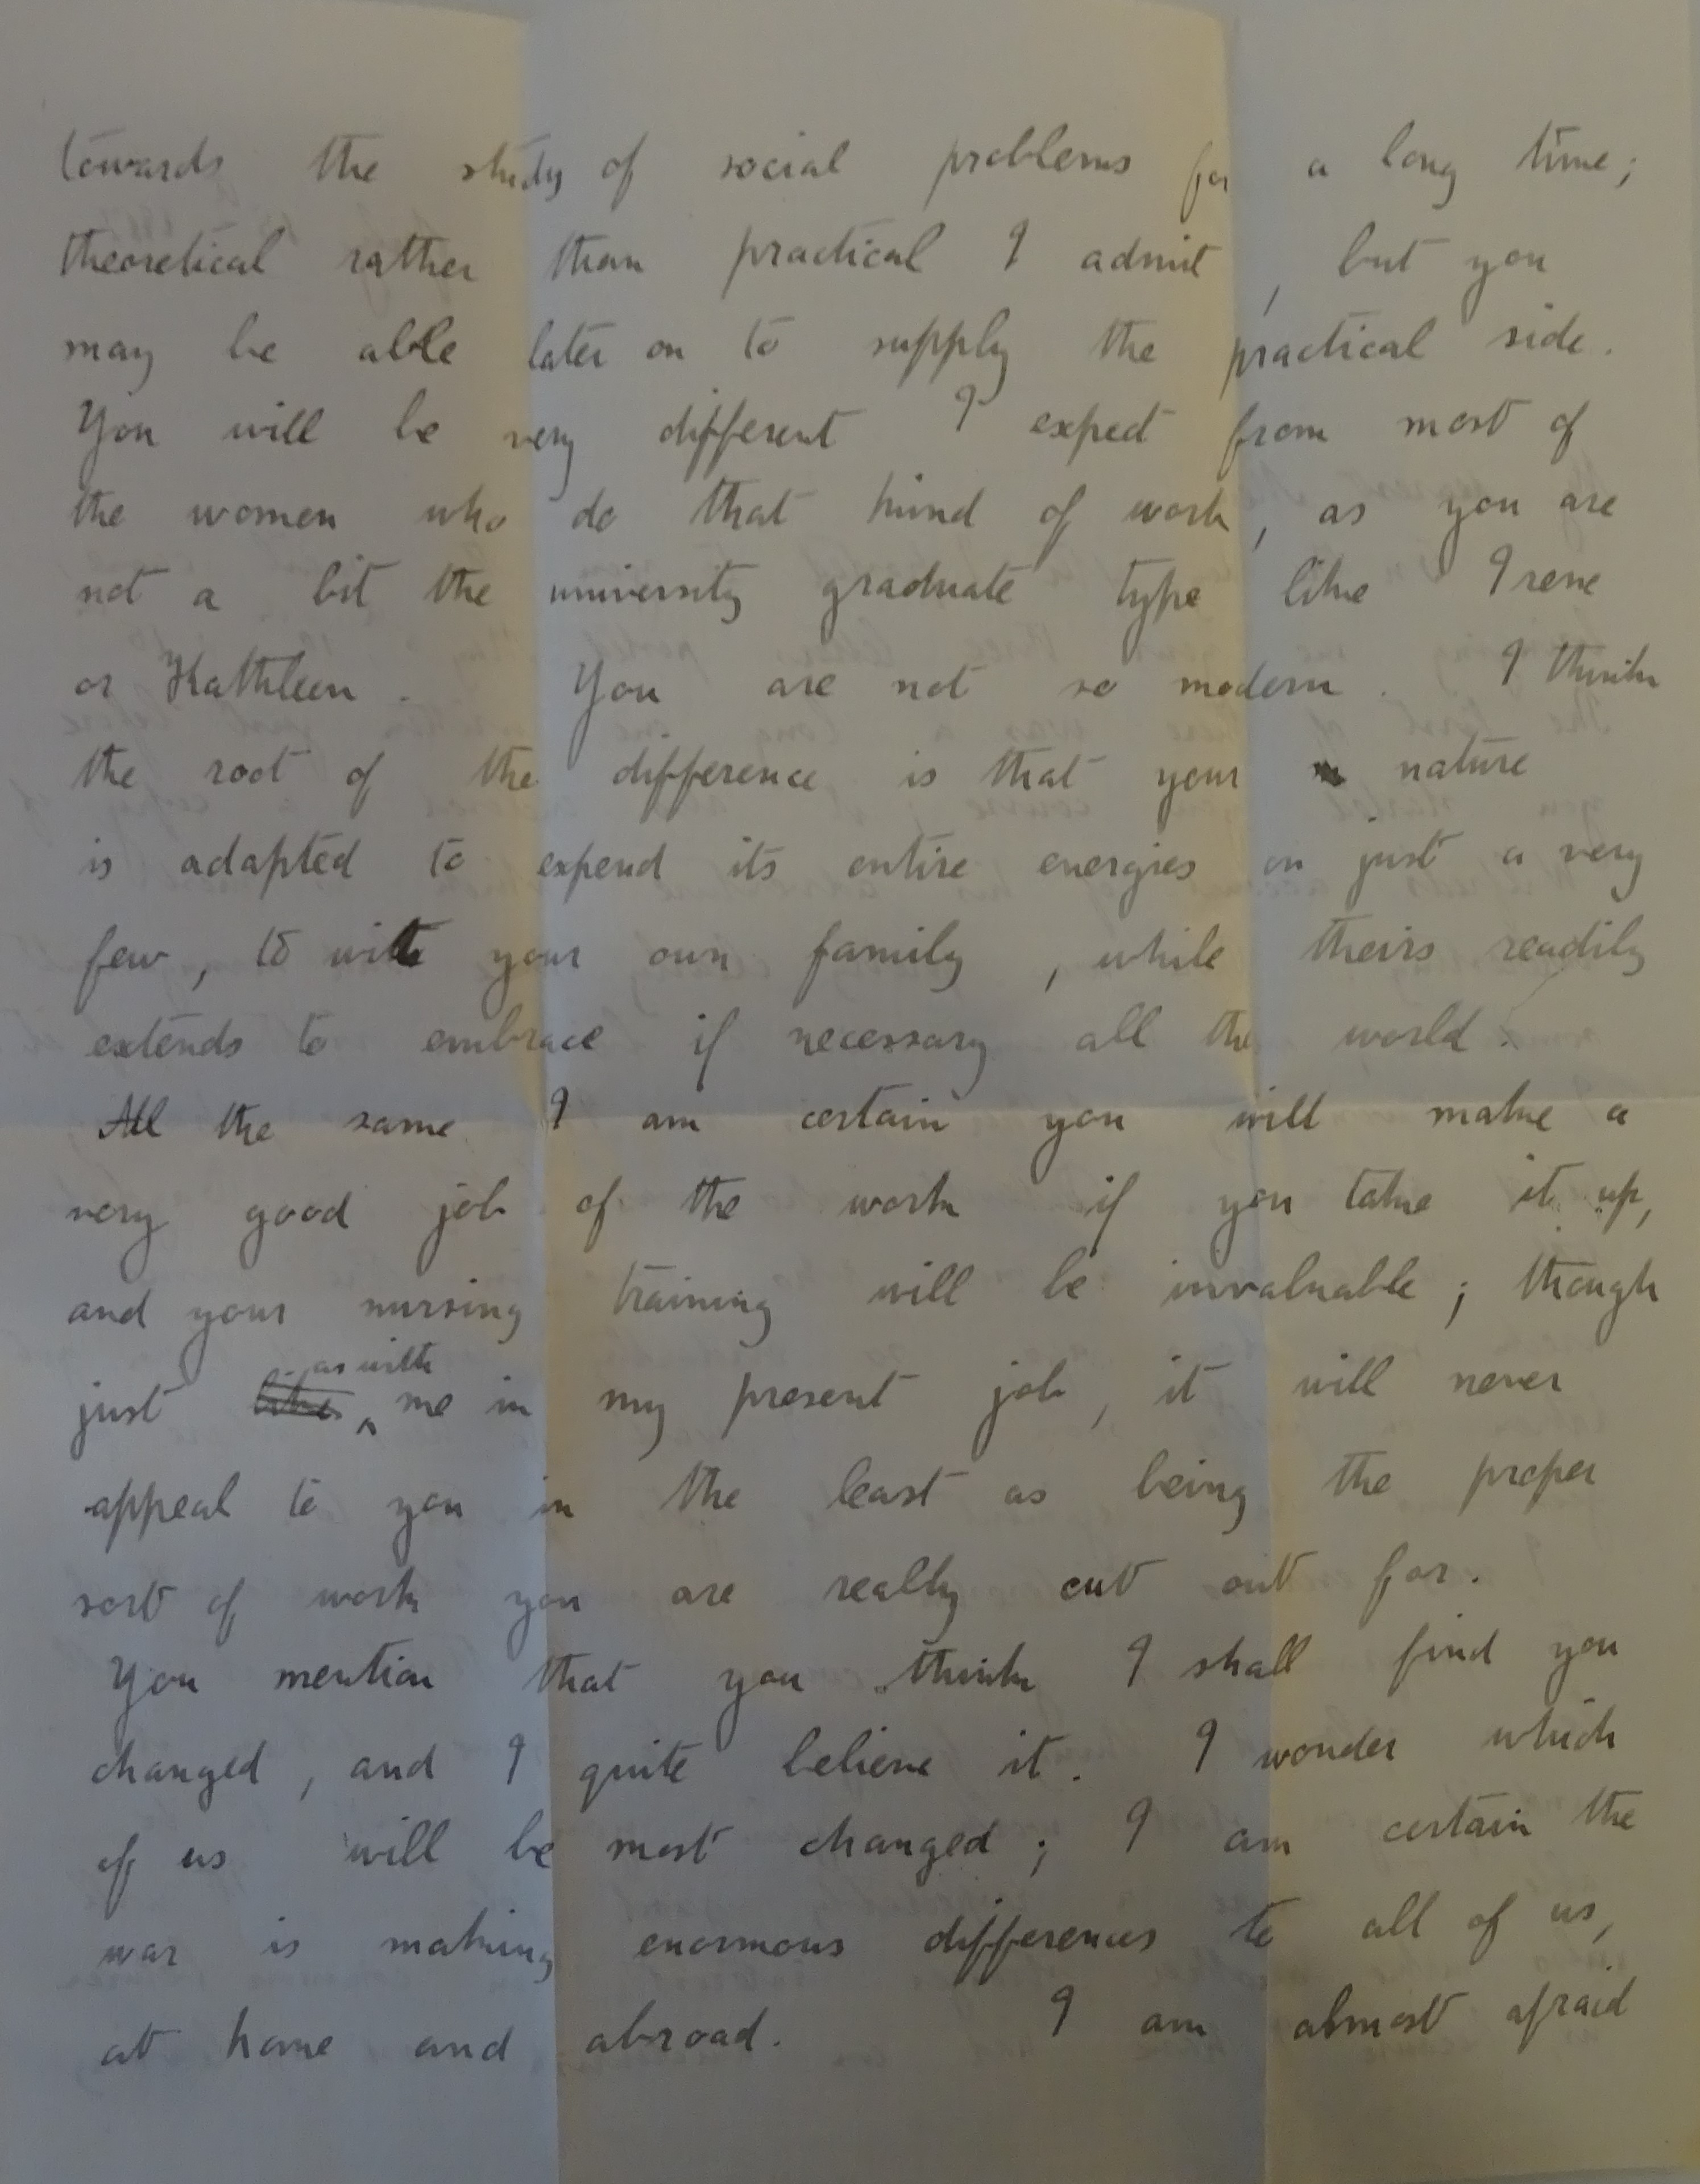 towards the study of social problems for a long time;
theoretical rather than practical I admit, but you
may be able later on to supply the practical side.
You will be very different I expect from most of
the women who do that kind of work, as you are
not a bit the university graduate type like Irene
or Kathleen. You are not so modern. I think
the root of the difference is that your nature
is adapted to expend its entire energies on just a very
few, to wit your own family, while theirs readily
extends to embrace if necessary all the world.
All the same I am certain you will make a
very good job of the work if you take it up,
and your nursing training will be invaluable; though
just like as with me in my present job, it will never
appeal to you in the least as being the proper
sort of work you are really cut out for.
You mention that you think I shall find you
changed, and I quite believe it. I wonder which
of us will be most changed; I am certain the
war is making enormous differences to all of us,
at home and abroad. I am almost afraid